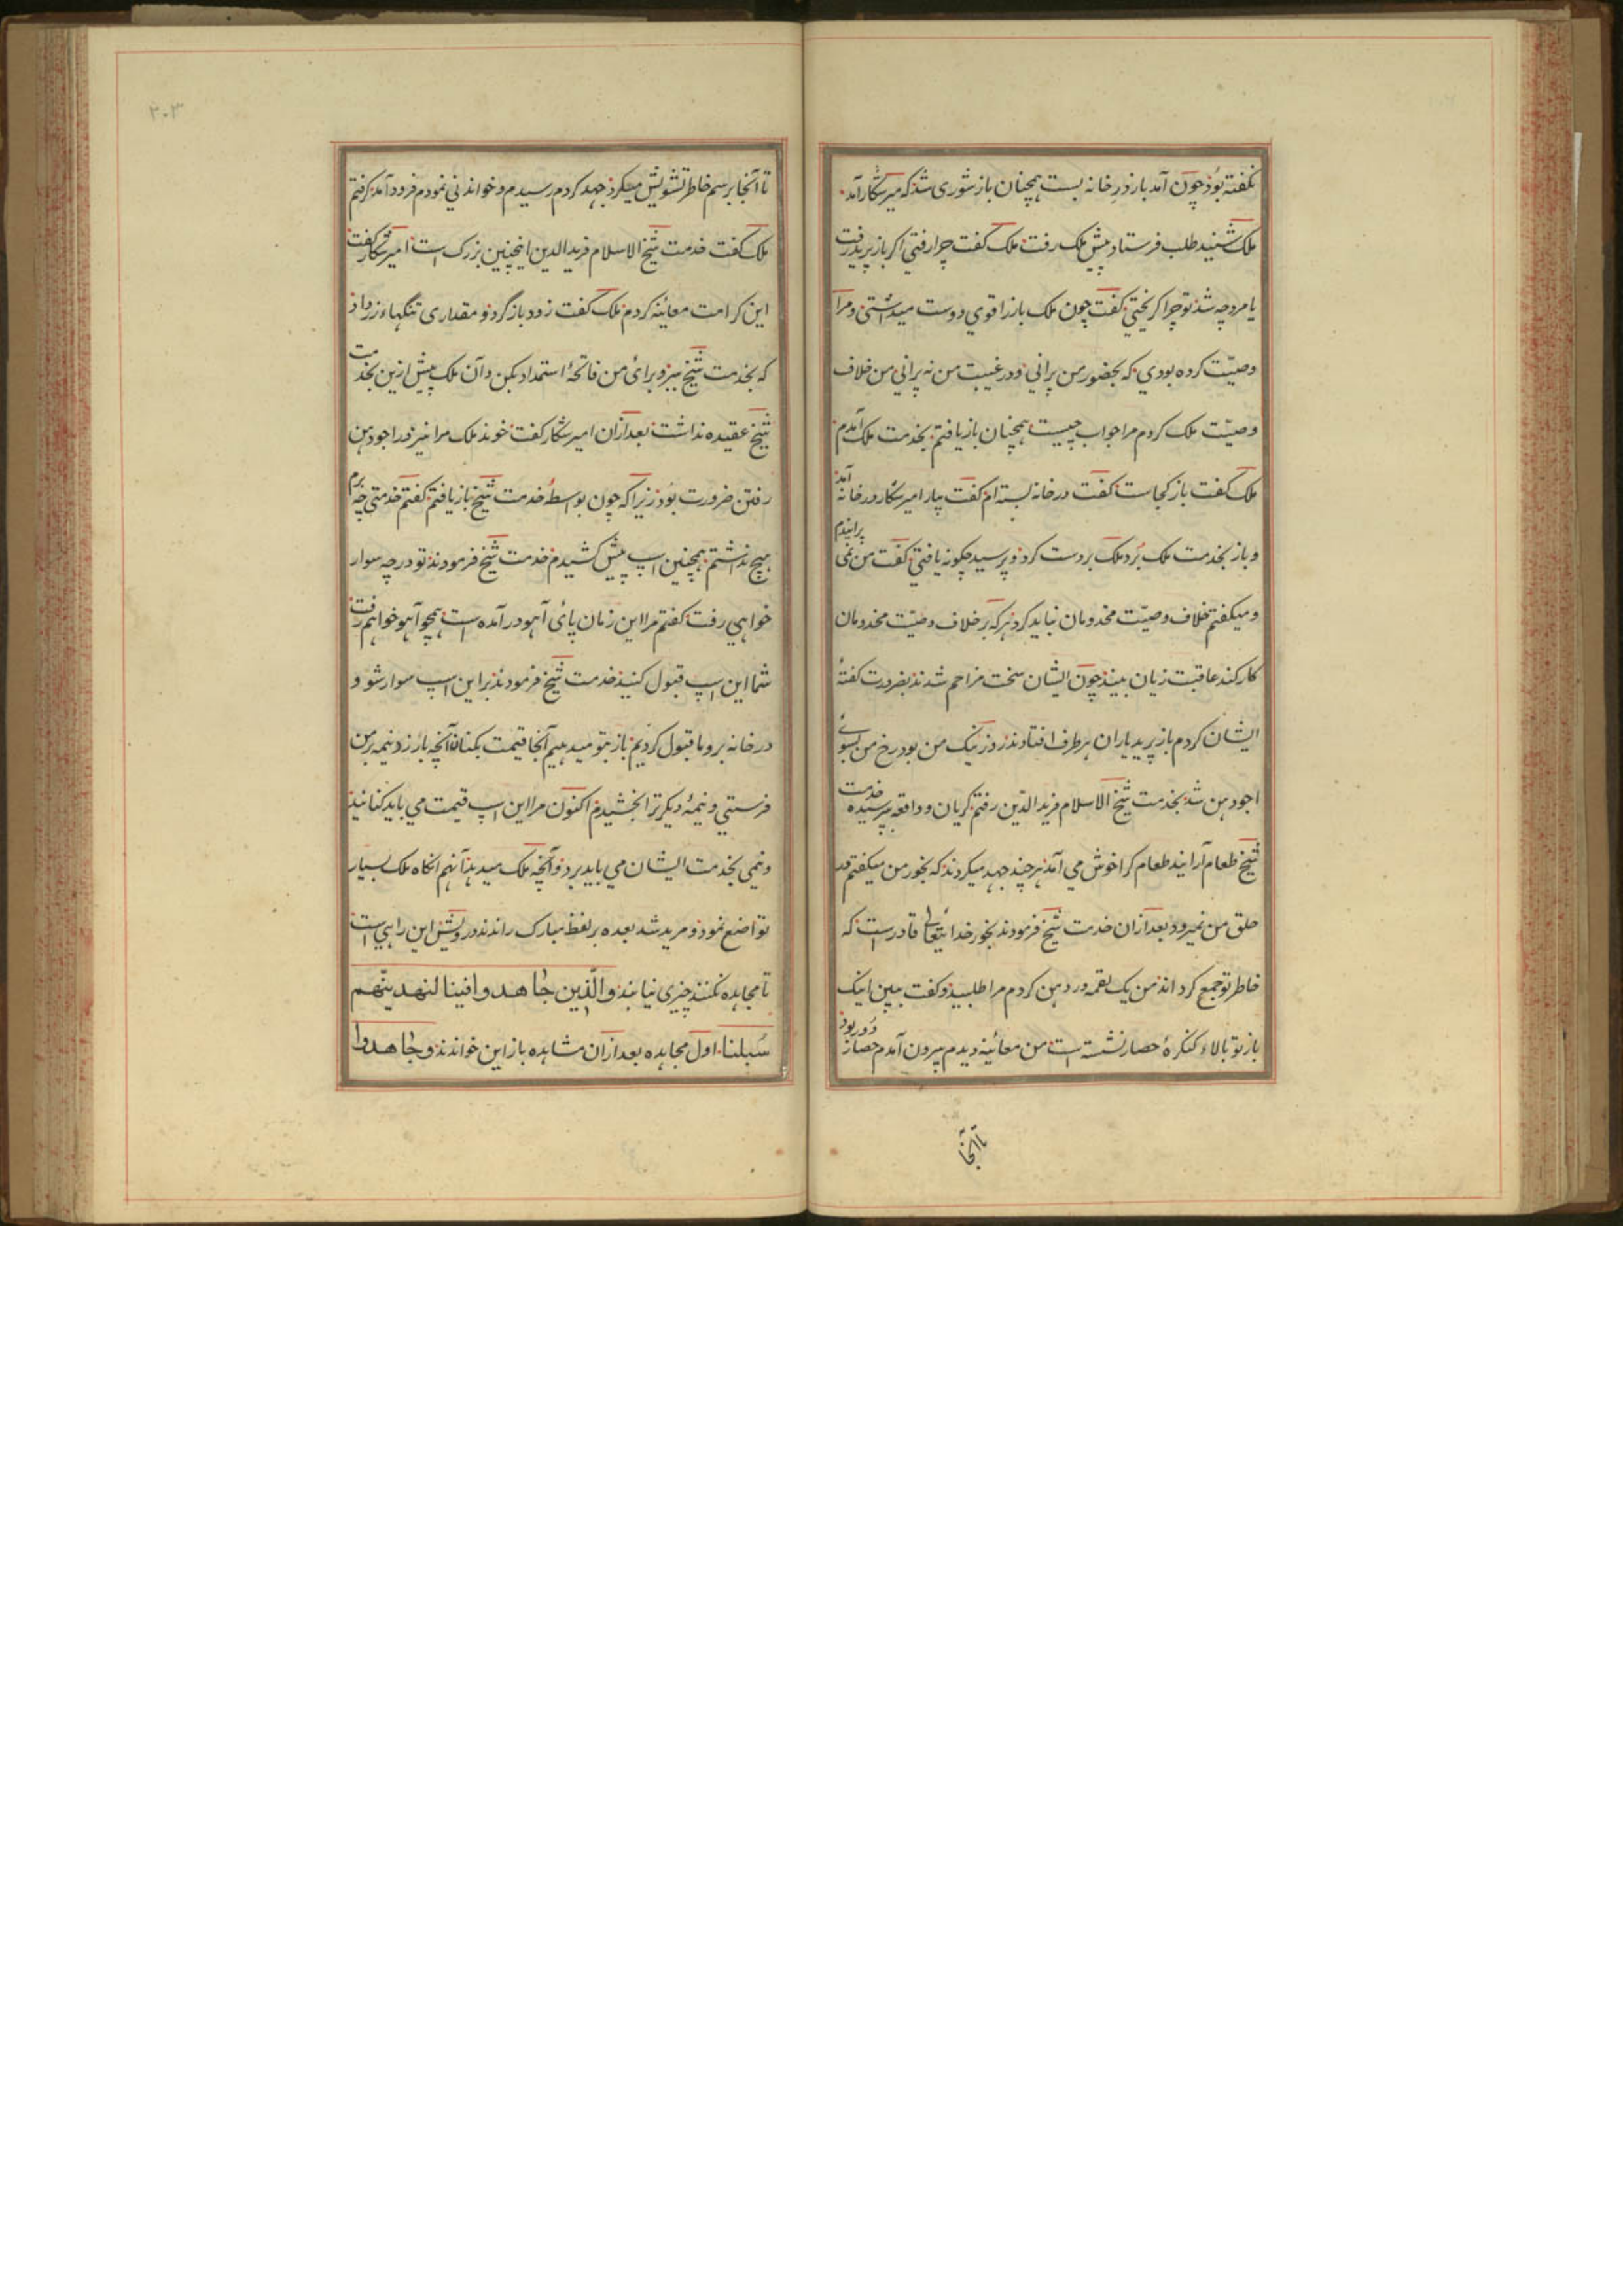 نکفته بود چون آمد باز در خانه بست همچنان باز شوری شد که میر شکار آمد
ملک شنید طلب فرستاد پیش ملک رفت ملک کفت چرا رفتی اکر باز پرید رفت
با مرد چه شد تو چرا کریختی کفت چون ملک باز را قوی دوست میداشتی و مرا
وصیّت کرده بودی که بحضور من پرانی و در غیبت من نه پرانی من خلاف
وصیّت ملک کردم مرا جواب چیست همچنان باز یافتم بخدمت ملک آمدم
ملک کفت باز کجاست کفت در خانه بسته ام کفت بیار امیر شکار در خانه آمد
و باز بخدمت ملک بُرد ملک بر دست کرد و پرسید چکونه یافتی کفت من نمی پرانیدم
و میکفتم خلاف وصیّت مخدومان نباید کرد هر که بر خلاف وصیّت مخدومان
کار کند عاقبت زیان بیند چون ایشان سخت مزاحم شدند بضرورت کفتهٔ
ایشان کردم باز پرید یاران هر طرف افتادند روز نیک من بود رخ من بسوئے
اجودهن شد بخدمت شیخ الاسلام فرید الدّین رفتم کریان و واقعه پرسیده خدمت
شیخ طعام آرانید طعام کرا خوش می آمد هر چند جهد میکردند که بخور من میکفتم در
حلق من نمیرود بعد ازان خدمت شیخ فرمودند بخور خدایتعالی قادر است که
خاطر تو جمع کرداند من یک لقمه در دهن کردم مرا طلبید و کفت ببین اینک
باز تو بالاء کنکرهٔ حصار نشسته است من معائینه دیدم بیرون آمدم حصار دور بود
تا آنجا
۳۰۳
تا آنجا برسم خاطر تشویش میکرد جهد کردم رسیدم و خواندنی نمودم فرود آمد کرفتم
ملک کفت خدمت شیخ الاسلام فرید الدین اینچنین بزرک است امیر شکار کفت
این کرامت معائنه کردم ملک کفت زود باز گرد و مقداری تنگهاء زر داد
که بخدمت شیخ ببر و برائ من فاتحهٔ استمداد بکن و آن ملک پیش ازین بخدمت
شیخ عقیده نداشت بعد ازان امیر شکار کفت خوند ملک مرا نیز در اجودهن
رفتن ضرورت بود زیرا که چون بواسطهٔ خدمت شیخ باز یافتم کفتم خدمتی چه برم
هیچ نداشتم همچنین اسپ پیش کشیدم خدمت شیخ فرمودند تو در چه سوار
خواهی رفت کفتم مرا این زمان پائ آهو در آمده است همچو آهو خواهم رفت
شما این اسپ قبول کنید خدمت شیخ فرمودند بر این اسپ سوار شو و
در خانه برو ما قبول کردیم باز بتو میدهیم آنجا قیمت بکنان آنچه بارزد نیمه بر من
فرستی و نیمهٔ دیکر ترا بخشیدم اکنون مرا این اسپ قیمت می باید کنانید
و نیمی بخدمت ایشان می باید برد و آنچه ملک میدهد آنهم انکاه ملک بسیار
تواضع نمود و مرید شد بعده بر لفظ مبارک راندند درویش این راهی است
تا مجاهده نکنند چیزی نیابند والّذین جاهدوا فینا لنهدینّهم
سُبلنا اول مجاهده بعد ازان مشاهده باز این خواندند و جاهدوا